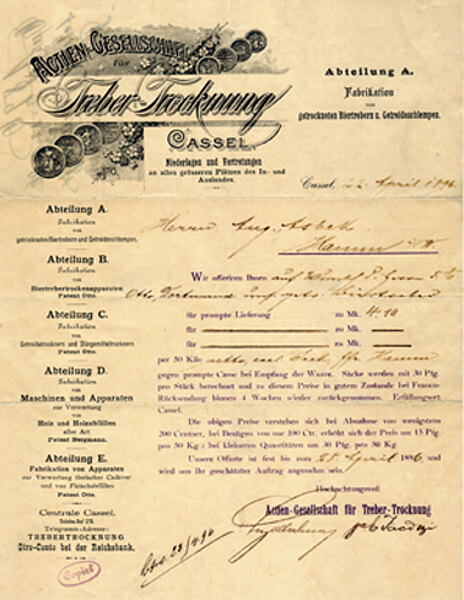 ACTIEN-GESELLSCHAFT
FÜR
Treber-Trocknung
CASSEL.
Niederlagen und Vertretungen
an allen grösseren Plätzen des In- und
Auslandes.
Abteilung A.
Fabrikation
von
getrockneten Biertrebern u. Getreideschlempen.
Cassel, 22 April 1896
Abteilung A.
Fabrikation
von
getrockneten Biertrebern und Getreideschlempen.
Abteilung B.
Fabrikation
von
Biertrebertrockenapparaten
Patent Otto.
Abteilung C.
Fabrikation
von
Getreidetrocknern und Düngemitteltrocknern
Patent Otto.
Abteilung D.
Fabrikation
von
Maschinen und Apparaten
zur Verwertung
von
Holz und Holzabfällen
aller Art
Patent Bergmann.
Abteilung E.
Fabrikation von Apparaten
zur Verwertung tierischer Cadaver
und von Fleischabfällen
Patent Otto.
Centrale Cassel.
Telefon-Ruf 279.
Telegramm-Adresse:
TREBERTROCKNUNG
Giro-Conto bei der Reichsbank.
Copirt
Herrn Aug. Asbeck
Hamm i/W
Wir offeriren Ihnen auf
Otto, Dortmund
für prompte Lieferung zu Mk. 4.10
für zu Mk.
für zu Mk.
per 50 Kilo netto, excl. Sack, Hamm
gegen prompte Casse bei Empfang der Waare. Säcke werden mit 30 Pfg.
pro Stück berechnet und zu diesem Preise in gutem Zustande bei Franco-
Rücksendung binnen 4 Wochen wieder zurückgenommen. Erfüllungsort
Cassel.
Die obigen Preise verstehen sich bei Abnahme von wenigstens
200 Centner, bei Bezügen von nur 100 Ctr. erhöht sich der Preis um 15 Pfg.
pro 50 Kg.; bei kleineren Quantitäten um 30 Pfg. pro 50 Kg.
Unsere Offerte ist fest bis zum 25 April 1896 und
wird uns Ihr geschätzter Auftrag angenehm sein.
Hochachtungsvoll
Actien-Gesellschaft für Treber-Trocknung
23/4 96